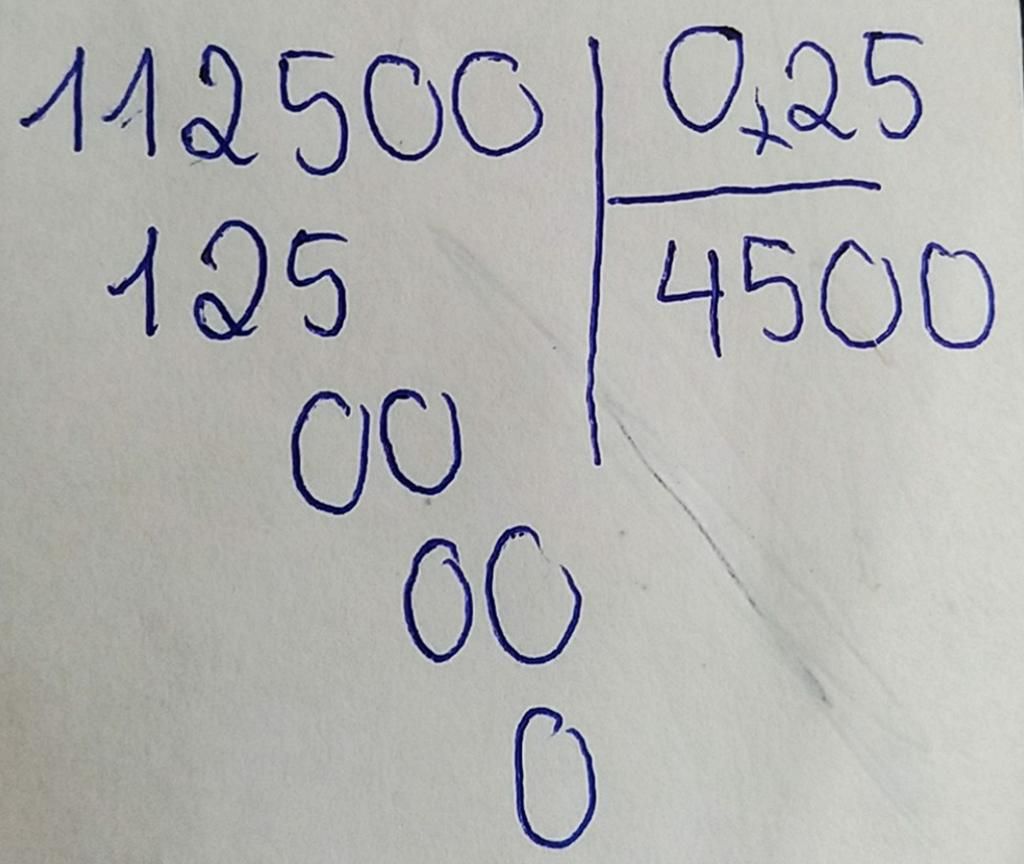 112500 0,25
125 4500
00
00
0